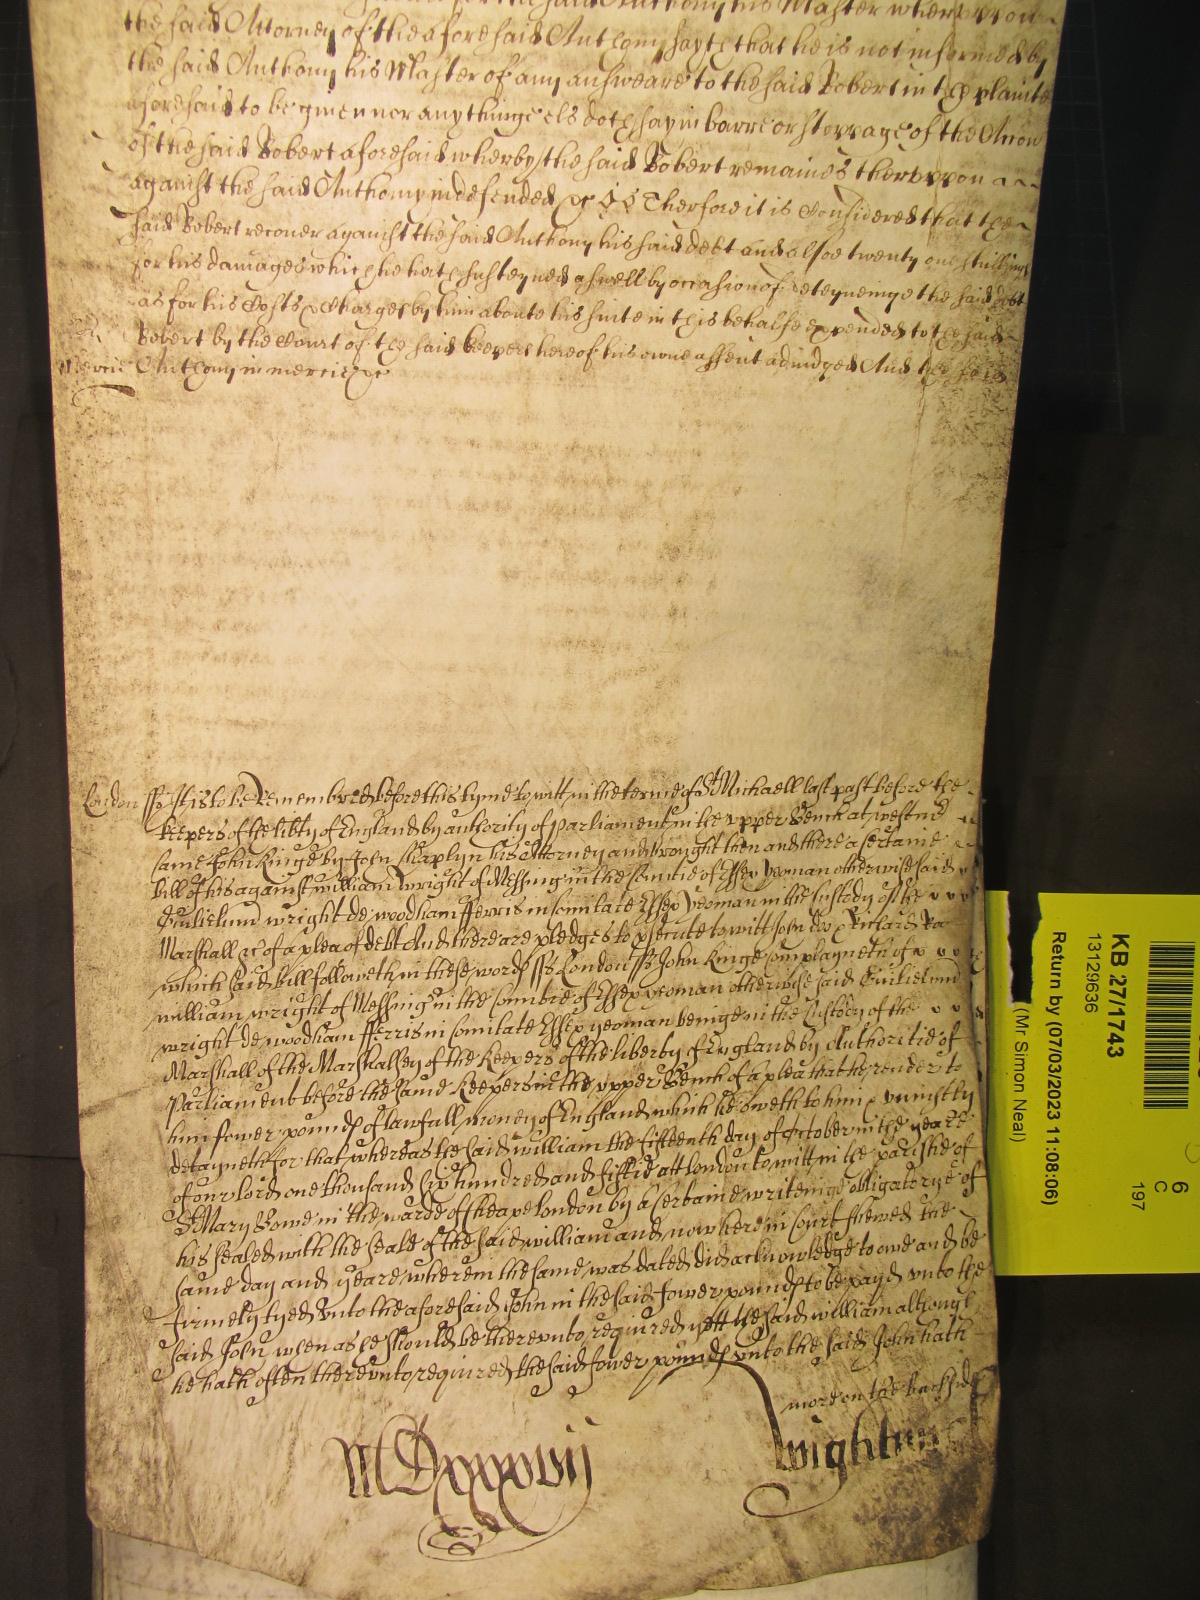 the said Anthony his Master wherupon
the said Attorney of the aforesaid Anthony sayth that he is not informed by
the said Anthony his Master of any answeare to the said Robert in the plainte
aforesaid to be given nor any thinge els doth say in barre or stoppage of the Accon
of the said Robert aforesaid wherby the said Robert remaines therupon
against the said Anthony indefended &c Therfore it is Considered that the
said Robert recover against the said Anthony his said debt and alsoe twenty one shillings
for his damages which he hath susteyned aswell by occasion of deteyneinge the said debt
as for his Costs & Charges by him aboute his suite in this behalfe expended to the said
Robert by the Court of the said keepers here of his owne assent adiudged And the said
Mercie Anthony in mercie &c
London ss It is to be Remembred before this tyme to witt in the terme of St Michaell last past before the
keepers of the libty of England by authority of parliament in the upper Bench at westmr
came John Kinge by John Chaplyn his Attorney and brought then and there a certaine
bill of his against william wright of Messing in the Countie of Essex yeoman otherwise said
Guilielmu wright de woodham fferris in Comitate Essex yeoman in the Custody of the
Marshall &c of a plea of debt And there are pledges to psecute to witt John Doe & Richard Roe
which said bill followeth in these words ss London ss John Kinge complayneth of
william wright of Messing in the Countie of Essex yeoman otherwise said Guilielmu
wright de woodham fferris in Comitate Essex yeoman beinge in the Custody of the
Marshall of the Marshallsey of the Keepers of the liberty of England by Authoritie of
Parliament before the same Keepers in the upper Bench of a plea that he render to
him fower pounds of lawfull money of England which he oweth to him & uniustly
detayneth for that whereas the said william the fifteenth day of October in the yeare
of our lord one thousand six hundred and fiftie att london to witt in the parishe of
St Mary Bowe in the warde of Cheape london by a certaine writeinge obligatorye of
his sealed with the seale of the said william and now here in Court shewed the
same day and yeare wherein the same was dated did acknowledge to owe and be
firmely tyed unto the aforesaid John in the said fower pounds to be payd unto the
said John when as he should be thereunto required yett the said william althoug
he hath often thereunto required the said fower pounds unto the said John hath
more on the backside
MDxxxvij
Wightw
6
C
197
KB 27/1743
13129636
Return by (07/03/2023 11:08:06)
(Mr Simon Neal)